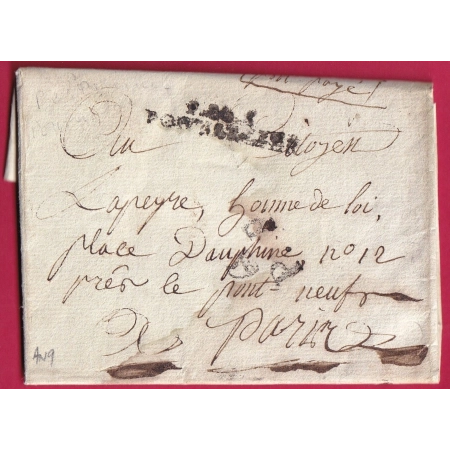 Au Citoyen
Lapeyre, homme de loi,
place Dauphine no 12
près le pont-neuf
A Paris
AN9